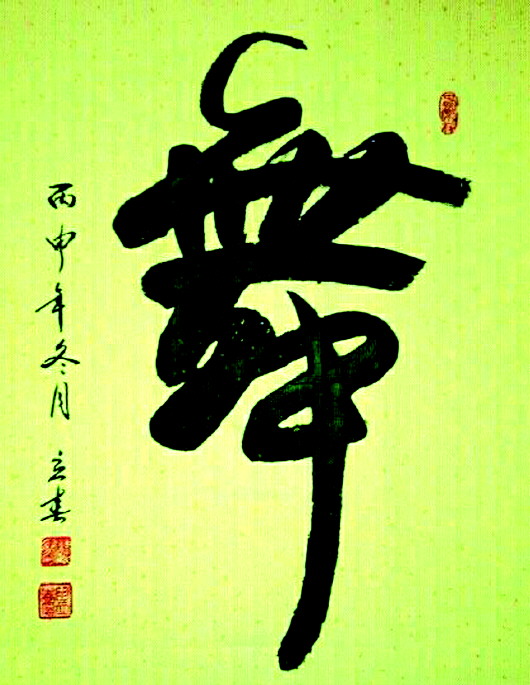 舞
丙申年冬月 立春